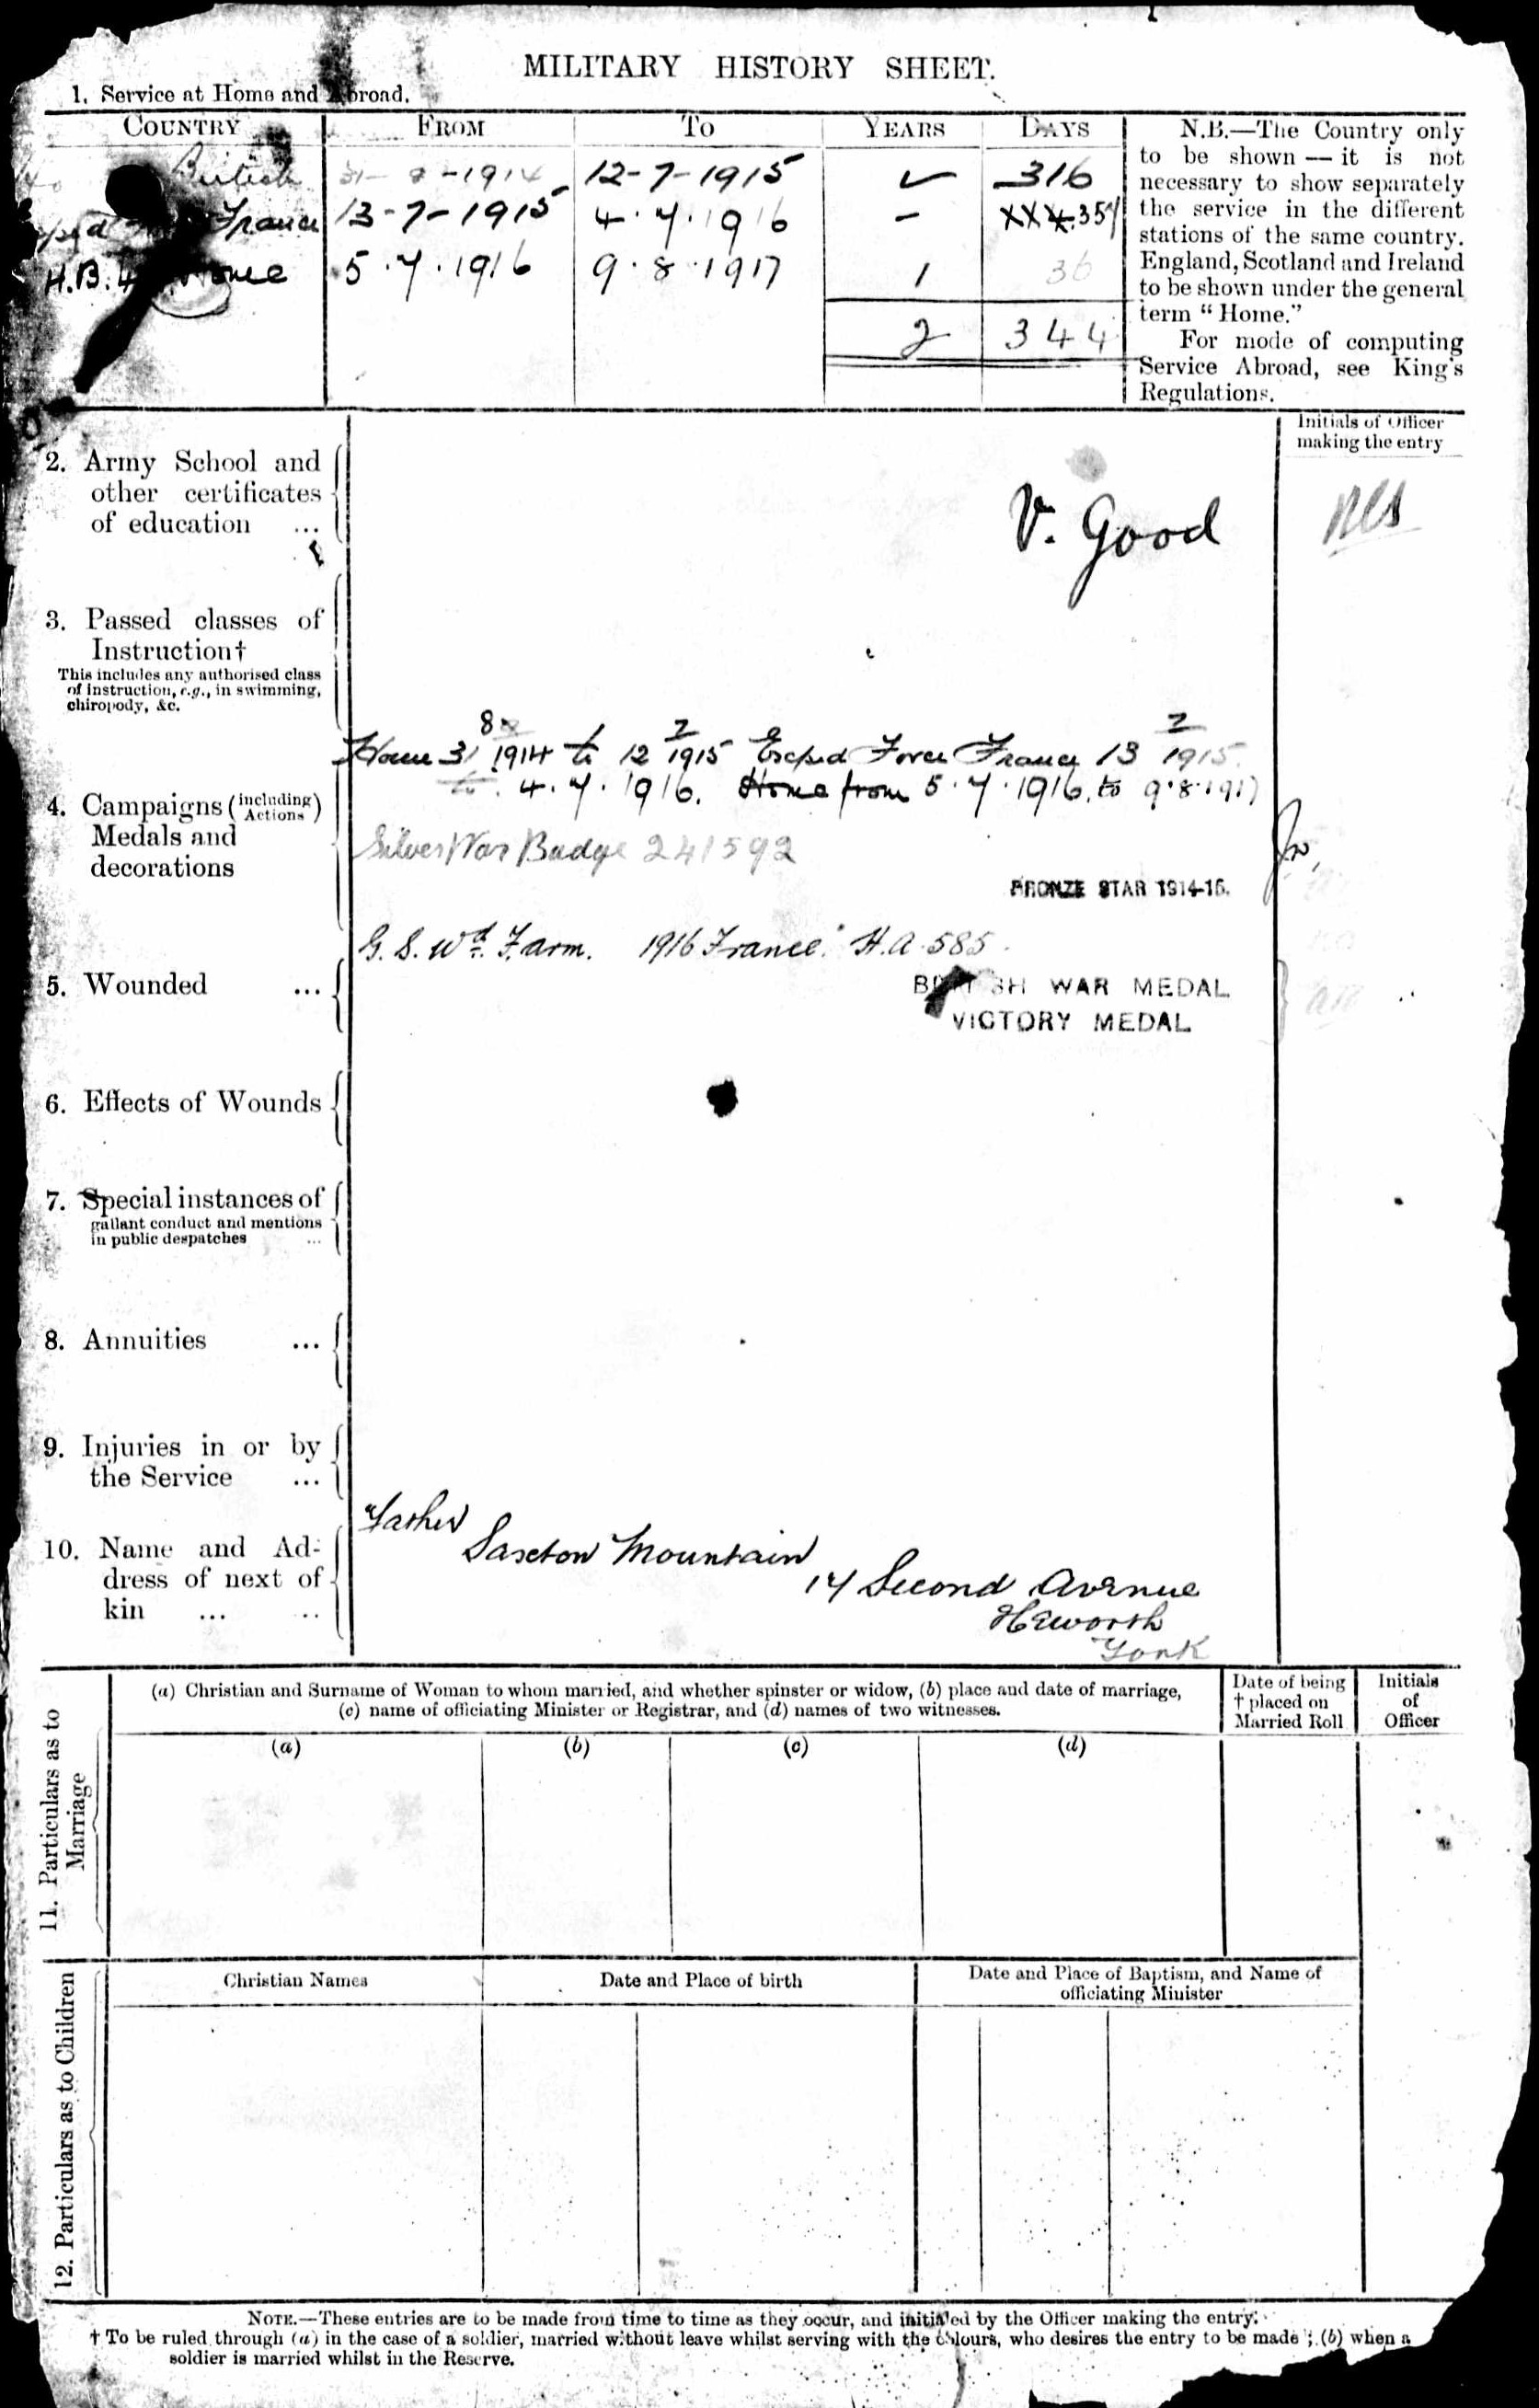 MILITARY HISTORY SHEET.
1. Service at Home and Abroad.
COUNTRY FROM TO YEARS DAYS
British 31-8-1914 12-7-1915 316
France 13-7-1915 4.7.1916 - 357
H.B. Home 5.7.1916 9.8.1917 1 36
2 344
N.B.—The Country only
to be shown — it is not
necessary to show separately
the service in the different
stations of the same country.
England, Scotland and Ireland
to be shown under the general
term “Home.”
For mode of computing
Service Abroad, see King's
Regulations.
Initials of Officer
making the entry
2. Army School and
other certificates
of education ...
V. Good
3. Passed classes of
Instruction†
This includes any authorised class
of instruction, e.g., in swimming,
chiropody, &c.
Home 31 8 1914 to 12 7 1915 Exped Force France 13 7 1915
to 4.7.1916. Home from 5.7.1916. to 9.8.1917
4. Campaigns (including Actions)
Medals and
decorations
Silver War Badge 241592
BRONZE STAR 1914-15.
G.S. Wd. F.arm. 1916 France. H.A. 585.
5. Wounded ...
BRITISH WAR MEDAL
VICTORY MEDAL
6. Effects of Wounds
7. Special instances of
gallant conduct and mentions
in public despatches ...
8. Annuities ...
9. Injuries in or by
the Service ...
10. Name and Ad-
dress of next of
kin ... ..
Father
Saxton Mountain
17 Second Avenue
Heworth
York
11. Particulars as to
Marriage
(a) Christian and Surname of Woman to whom married, and whether spinster or widow, (b) place and date of marriage,
(c) name of officiating Minister or Registrar, and (d) names of two witnesses.
Date of being
† placed on
Married Roll
Initials
of
Officer
(a) (b) (c) (d)
12. Particulars as to Children
Christian Names Date and Place of birth
Date and Place of Baptism, and Name of
officiating Minister
NOTE.—These entries are to be made from time to time as they occur, and initialed by the Officer making the entry.
† To be ruled through (a) in the case of a soldier, married without leave whilst serving with the Colours, who desires the entry to be made; (b) when a
soldier is married whilst in the Reserve.